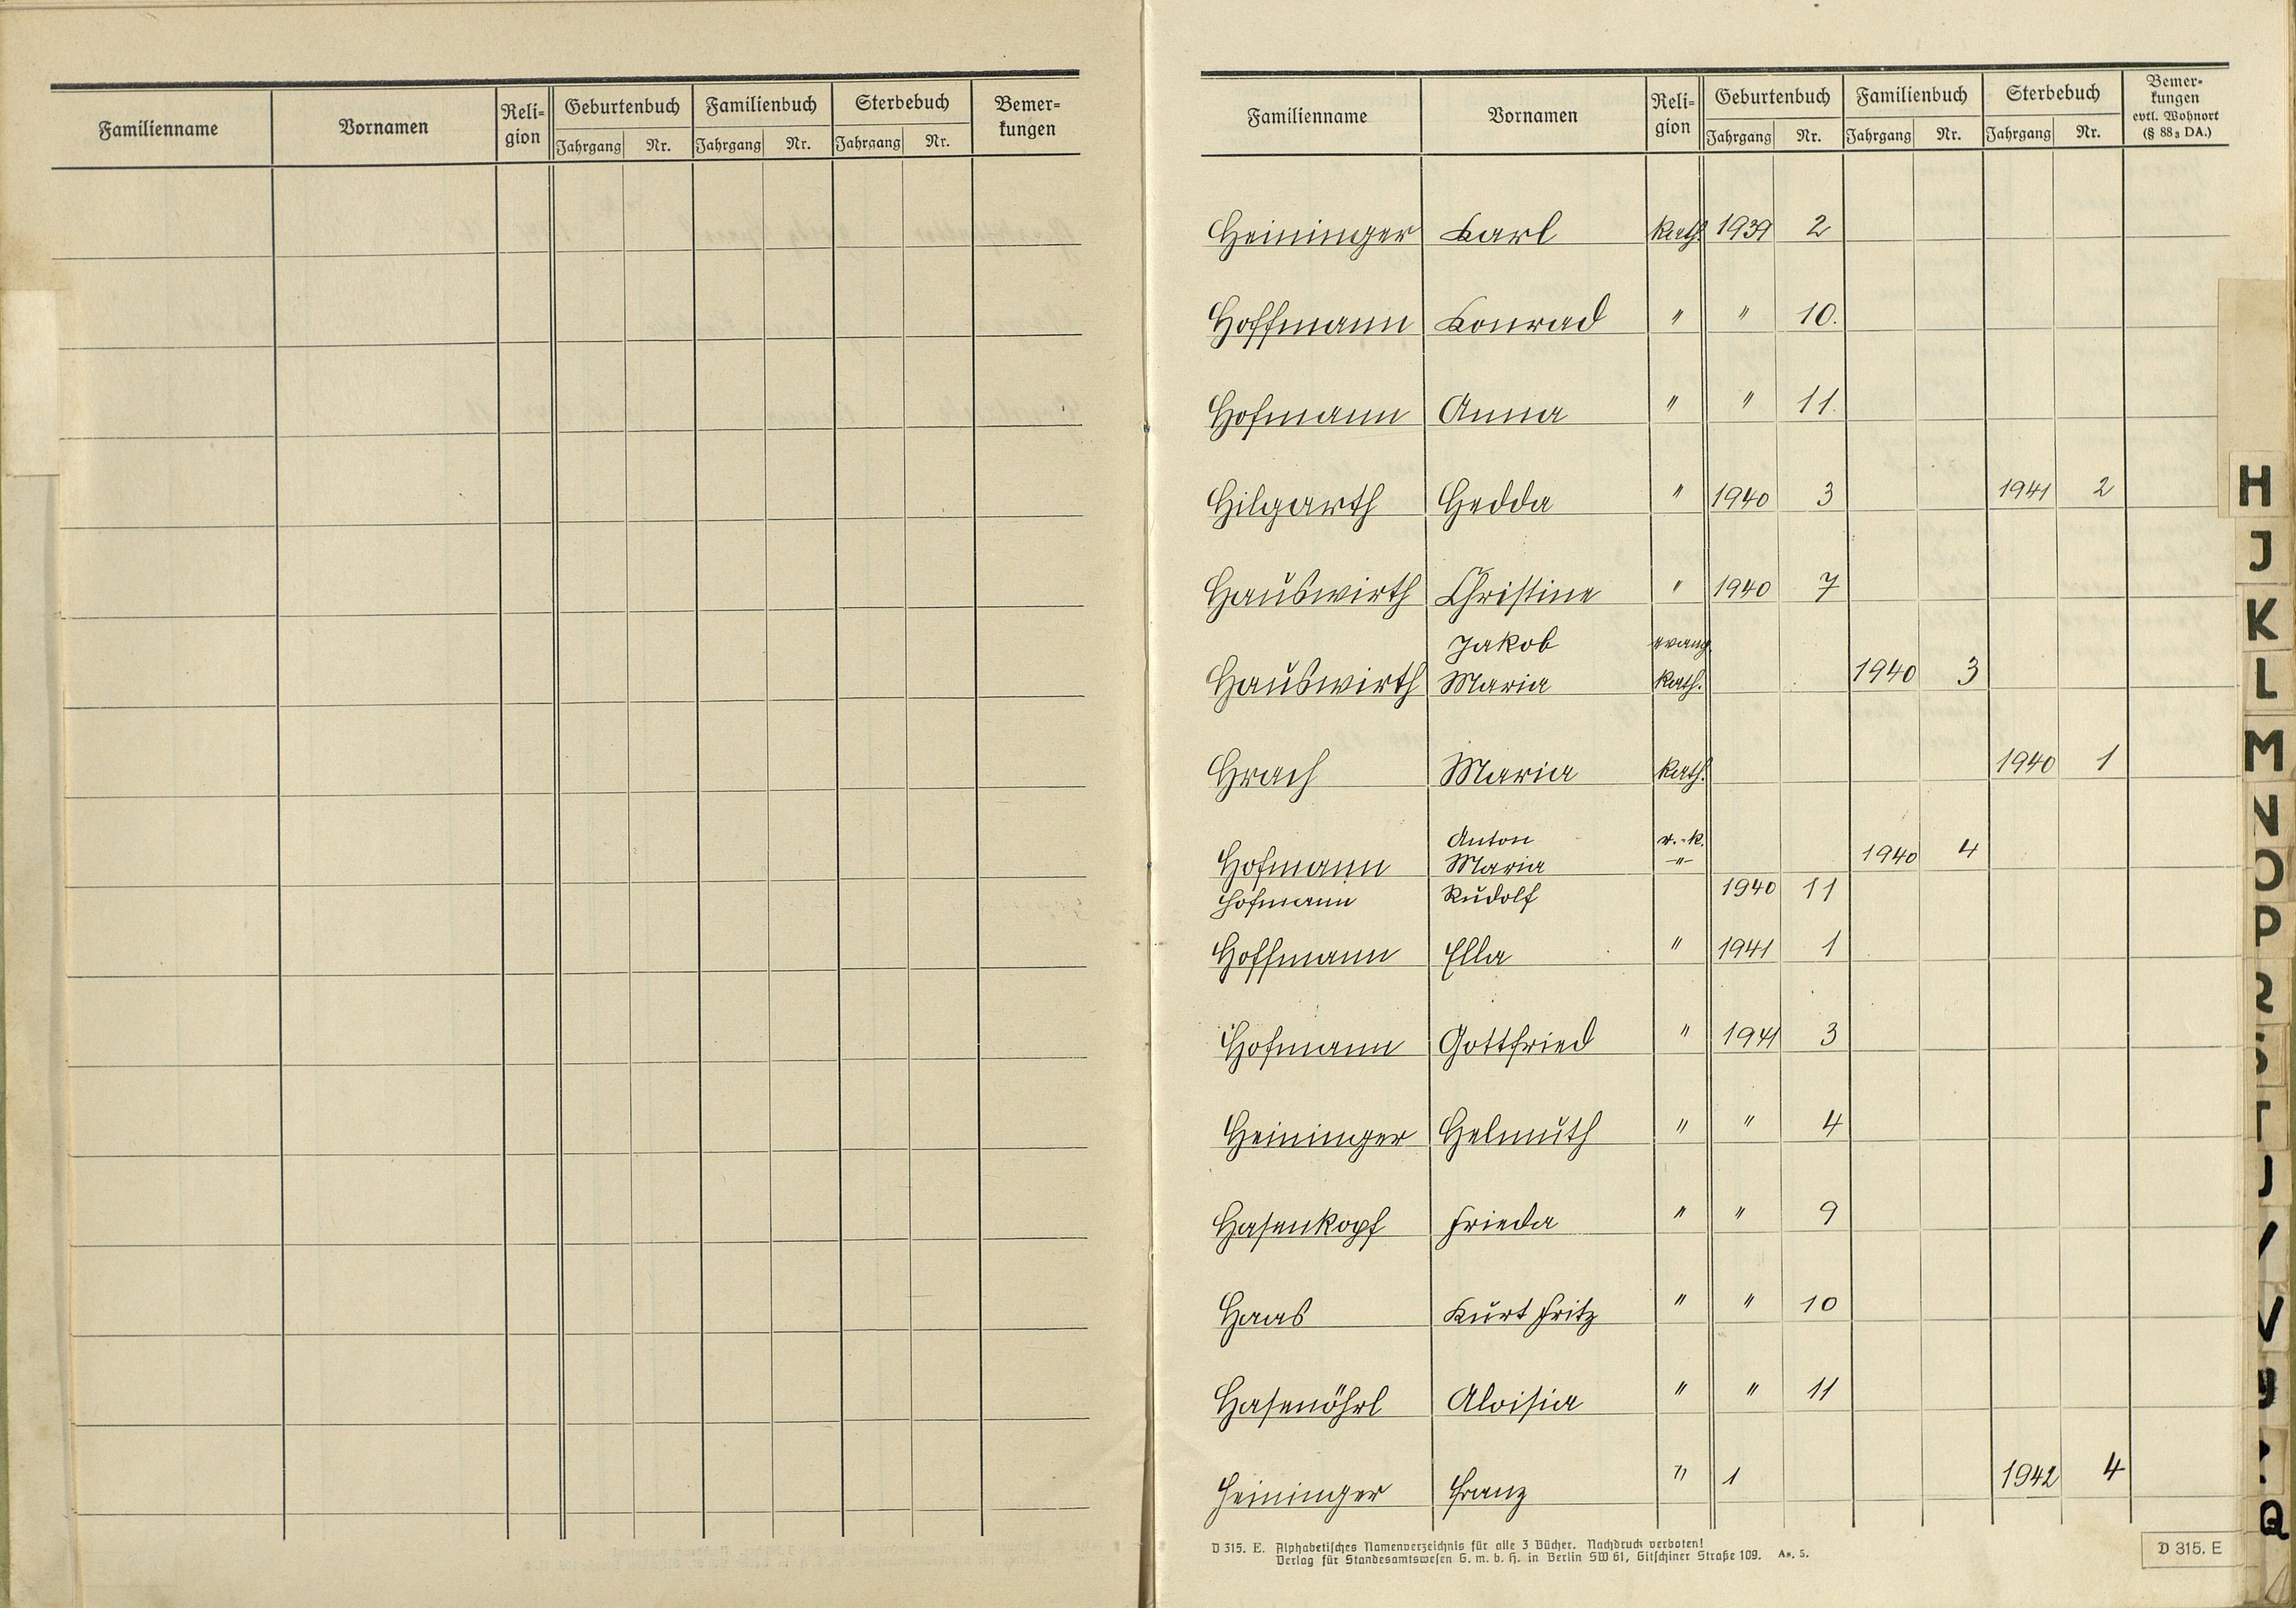 Familienname Vornamen Reli-gion Geburtenbuch Familienbuch Sterbebuch Bemer-kungen
Jahrgang Nr. Jahrgang Nr. Jahrgang Nr.
Familienname Vornamen Reli-gion Geburtenbuch Familienbuch Sterbebuch Bemer-kungen evtl. Wohnort (§ 88₃ DA.)
Jahrgang Nr. Jahrgang Nr. Jahrgang Nr.
Heininger Karl Kath. 1939 2
Hoffmann Konrad " " 10.
Hofmann Anna " " 11.
Hilgarth Hedda " 1940 3 1941 2
Hauswirth Christine " 1940 7
Jakob evang
Hauswirth Maria Kath. 1940 3
Hrach Maria Kath. 1940 1
Anton r.-k.
Hofmann Maria -"- 1940 4
Hofmann Rudolf 1940 11
Hoffmann Ella " 1941 1
Hofmann Gottfried " 1941 3
Heininger Helmuth " " 4
Hasenkopf Frieda " " 9
Haas Kurt Fritz " " 10
Hasenöhrl Aloisia " " 11
Heininger Franz " 1 1942 4
D 315. E. Alphabetisches Namenverzeichnis für alle 3 Bücher. Nachdruck verboten!
Verlag für Standesamtswesen G. m. b. H. in Berlin SW 61, Gitschiner Straße 109. As. 5.
D 315. E
H
J
K
L
M
N
O
P
R
S
T
V
Q